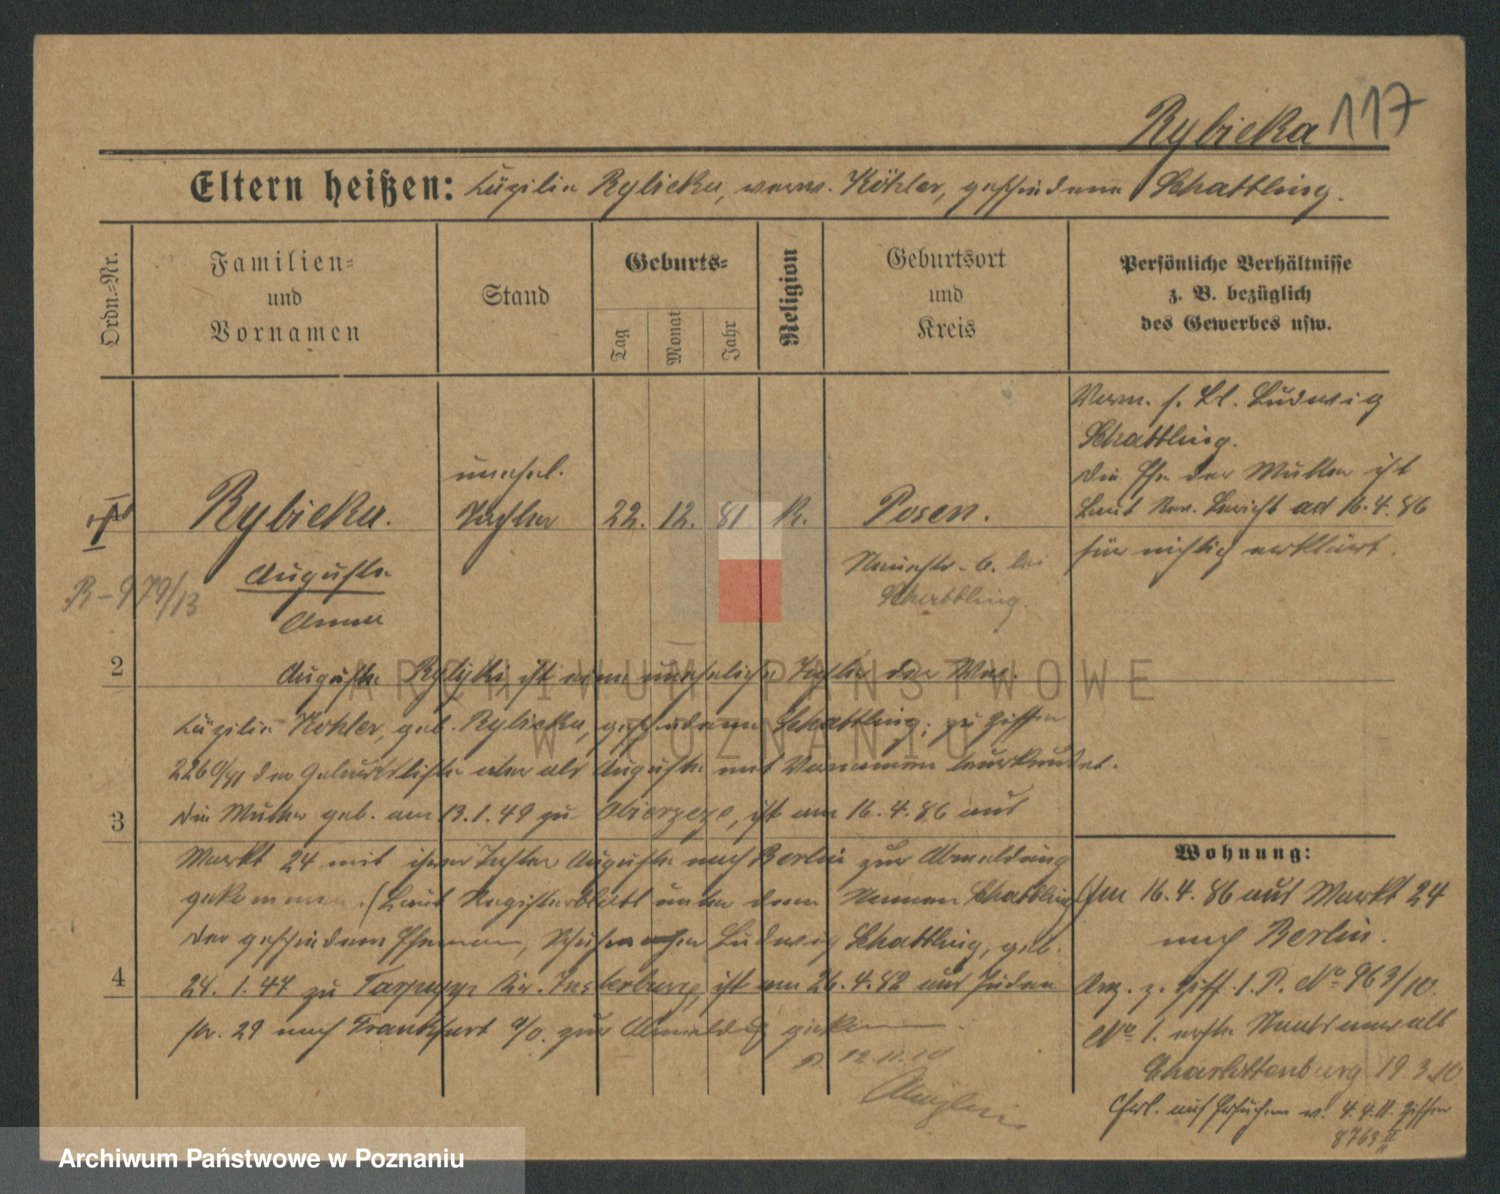 Rybicka 117
Eltern heißen: Cäzilie Rybicka, verw. Köhler, geschiedene Schattling.
Ordn.=Nr.
Familien=
und
Vornamen
Stand
Geburts=
Tag
Monat
Jahr
Religion
Geburtsort
und
Kreis
Persönliche Verhältnisse
z. B. bezüglich
des Gewerbes usw.
Verm. s. Bl. Ludwig
Schattling.
Die Ehe der Mutter ist
laut Bericht ad 16.4.86
für nichtig erklärt.
1
Rybicka.
unehel.
Tochter
22. 12. 81 K.
Posen.
Auguste
Anna
R-979/13
Neuestr. 6. bei
Schattling.
2
Auguste ist eine uneheliche Tochter der Ww.
Cäzilie Köhler, geb. Rybicka, geschiedene Schattling; zu Ziffer
2260/81 der Geburtsliste aber als Auguste mit Vornamen beurkundet.
Die Mutter geb. am 13.1.49 zu Obierzeze, ist am 16.4.86 aus
3
Markt 24 mit ihrer Tochter Auguste nach Berlin zur Abmeldung
gekommen. (Laut Registerblatt unter dem Namen Schattling)
Der geschiedene Ehemann, Schuhmacher Ludwig Schattling, geb.
4
24. 1. 47 zu Kr. Insterburg, ist am 26.4.82 aus Juden
str. 29 nach Frankfurt a/O. zur Abmeldg gekommen.
12.11.10
Wohnung:
Am 16.4.86 aus Markt 24
nach Berlin.
Anz. z. Ziff. I. P. No 963/10.
No 1. erste Staatsanwalt
Charlottenburg 19.3.10.
auf Ersuchen v. 4.4.11. Ziffer
8763 II
ARCHIWUM PAŃSTWOWE
W POZNANIU
Archiwum Państwowe w Poznaniu